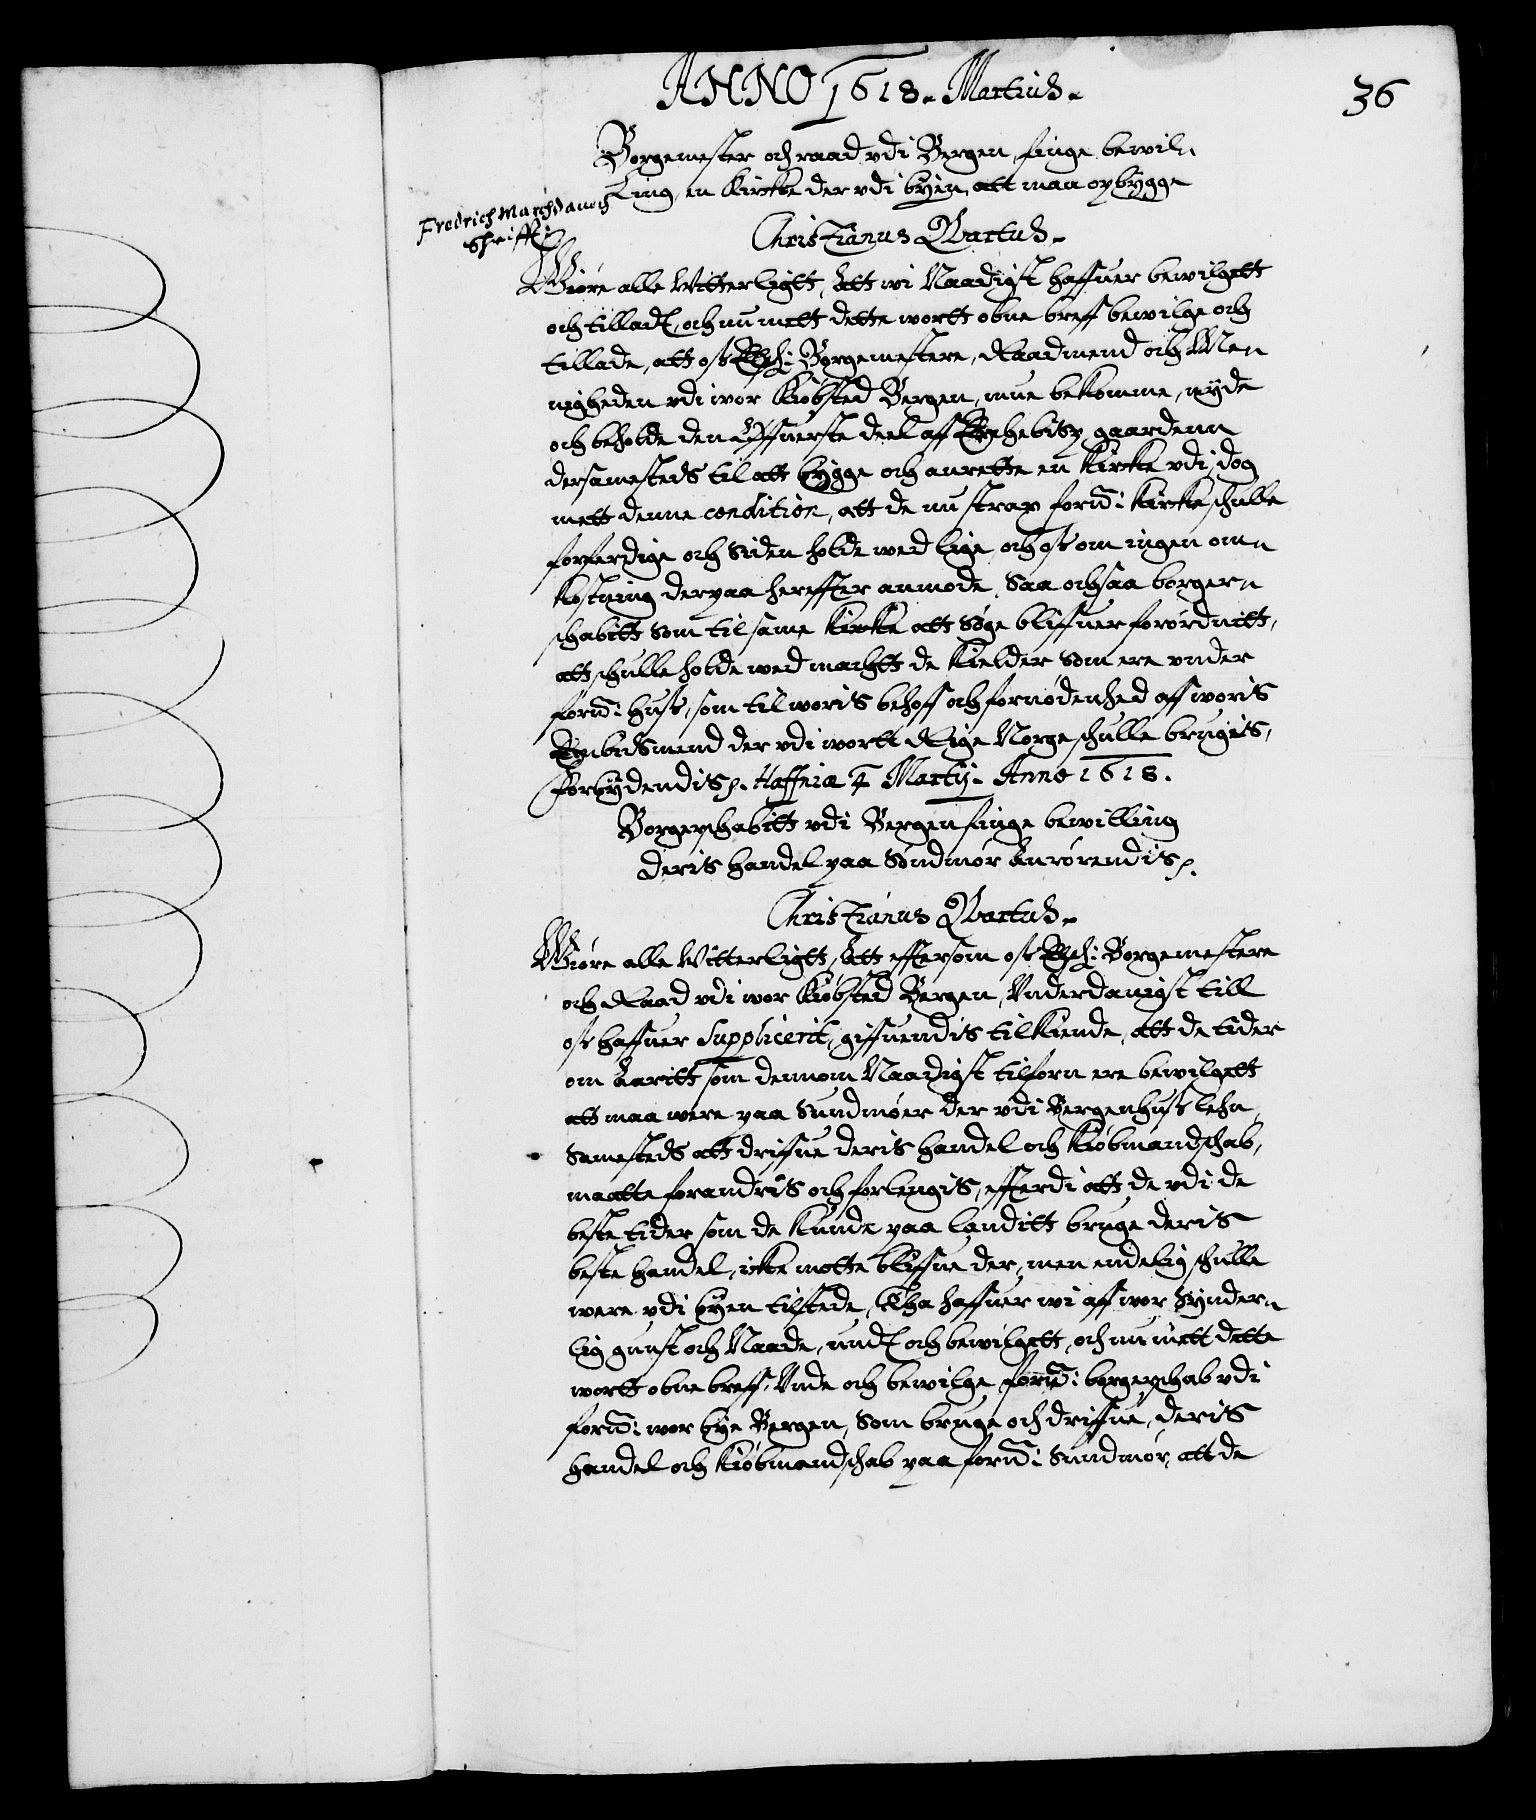 ANNO 1618. Martius.
36
Borgemester och raad vdi Bergen finge bewil-
ling en Kircke der vdi byen att maa opbygge
Fredrich Marchdanch
Schrifft:
Christianus Qvartus.
Giøre alle Witterligtt, Att wi Naadigst haffuer bewilgett
och tilladt, och nu mett dette wortt obne breff bewilge och
tillade, att oss Elsch: Borgemestere, Raadmend och Me-
nigheden vdi wor Kiøbsted Bergen, mue bekomme, nyde
och beholde den Øffuerste deel aff Erchebisp gaardenn
dersamesteds til att bygge och anrette en Kircke vdi, dog
mett denne condition, att de nu strax ford: Kircke schulle
forferdige och siden holde wed lige, och oss om ingen om-
kostning derpaa hereffter anmode, Saa och saa borger-
schabitt som til same Kircke att søge bliffuer forordnitt,
att schulle holde wed machtt de Kielder som ere vnder
ford: huss, som til woris behoff och fornødenhed aff woris
Embidsmend der vdi wortt Rige Norge schulle brugis,
Forbydendis p. Haffniæ 4 Martij. Anno 1618.
Borgerschabitt vdi Bergen finge bewilling
deris handel paa Søndmør Anrørendis p.
Christianus Qvartus.
Giøre alle Witterligtt, Att effterssom oss Elsch: Borgemestere
och Raad vdi wor Kiøbsted Bergen, Vnderdanigst till
oss haffuer Supplicerit, giffuendis tilkiende, att de tider
om Aaritt som dennom Naadigst tilforn ere bewilgett
att maa were paa Sundmøer der vdi Bergenhuss lehn,
Samesteds att driffue deris handel och Kiøbmandschab,
maatte forandris och forlengis, efftterdi att de vdi de
beste tider som de kunde paa landitt bruge deris
beste handel, icke motte bliffue der, men endelig schulle
were vdi byen tilstede, Tha haffuer wi aff wor synder-
lig gunst och Naade, undt och bewilgett, och nu mett dette
wortt obne breff, Vnde och bewilge ford: borgerschab vdi
ford: wor bye Bergen, Som bruge och driffue, deris
handel och Kiøbmandschab paa ford: Sundmør, att de